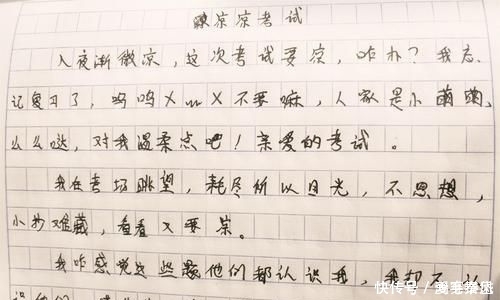 凉凉考试
入夜渐微凉，这次考试要凉，咋办？我忘
记复习了，呜呜XmX不要嘛，人家是小萌萌，
么么哒，对我温柔点吧！亲爱的考试。
我在考场眺望，耗尽所以目光，不思想，
小抄难藏，看看又要凉。
我咋感觉这些题他们都认识我，我却不认
识他们
快传号／